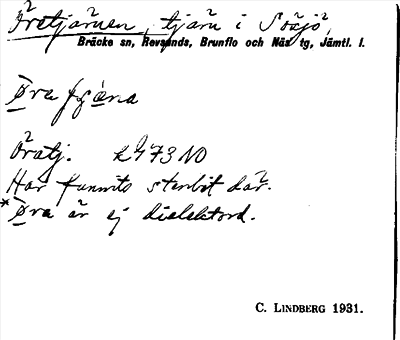 Öretjärnen, tjärn i Sösjö,
Bräcke sn, Revsunds, Brunflo och Näs tg, Jämtl. l.
Øra
Öratj. 473 NO
Har funnits stenbit där.
*Øra är ej dialektord.
C. LINDBERG 1931.